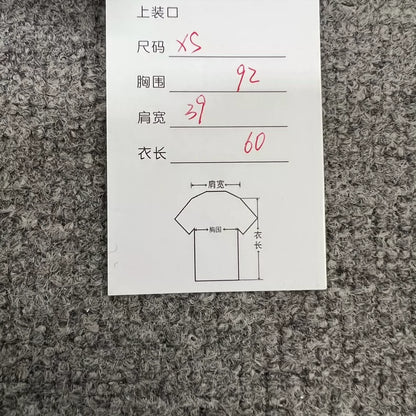 上装口
尺码 XS
胸围 92
肩宽 39
衣长 60
肩宽
胸围
衣长